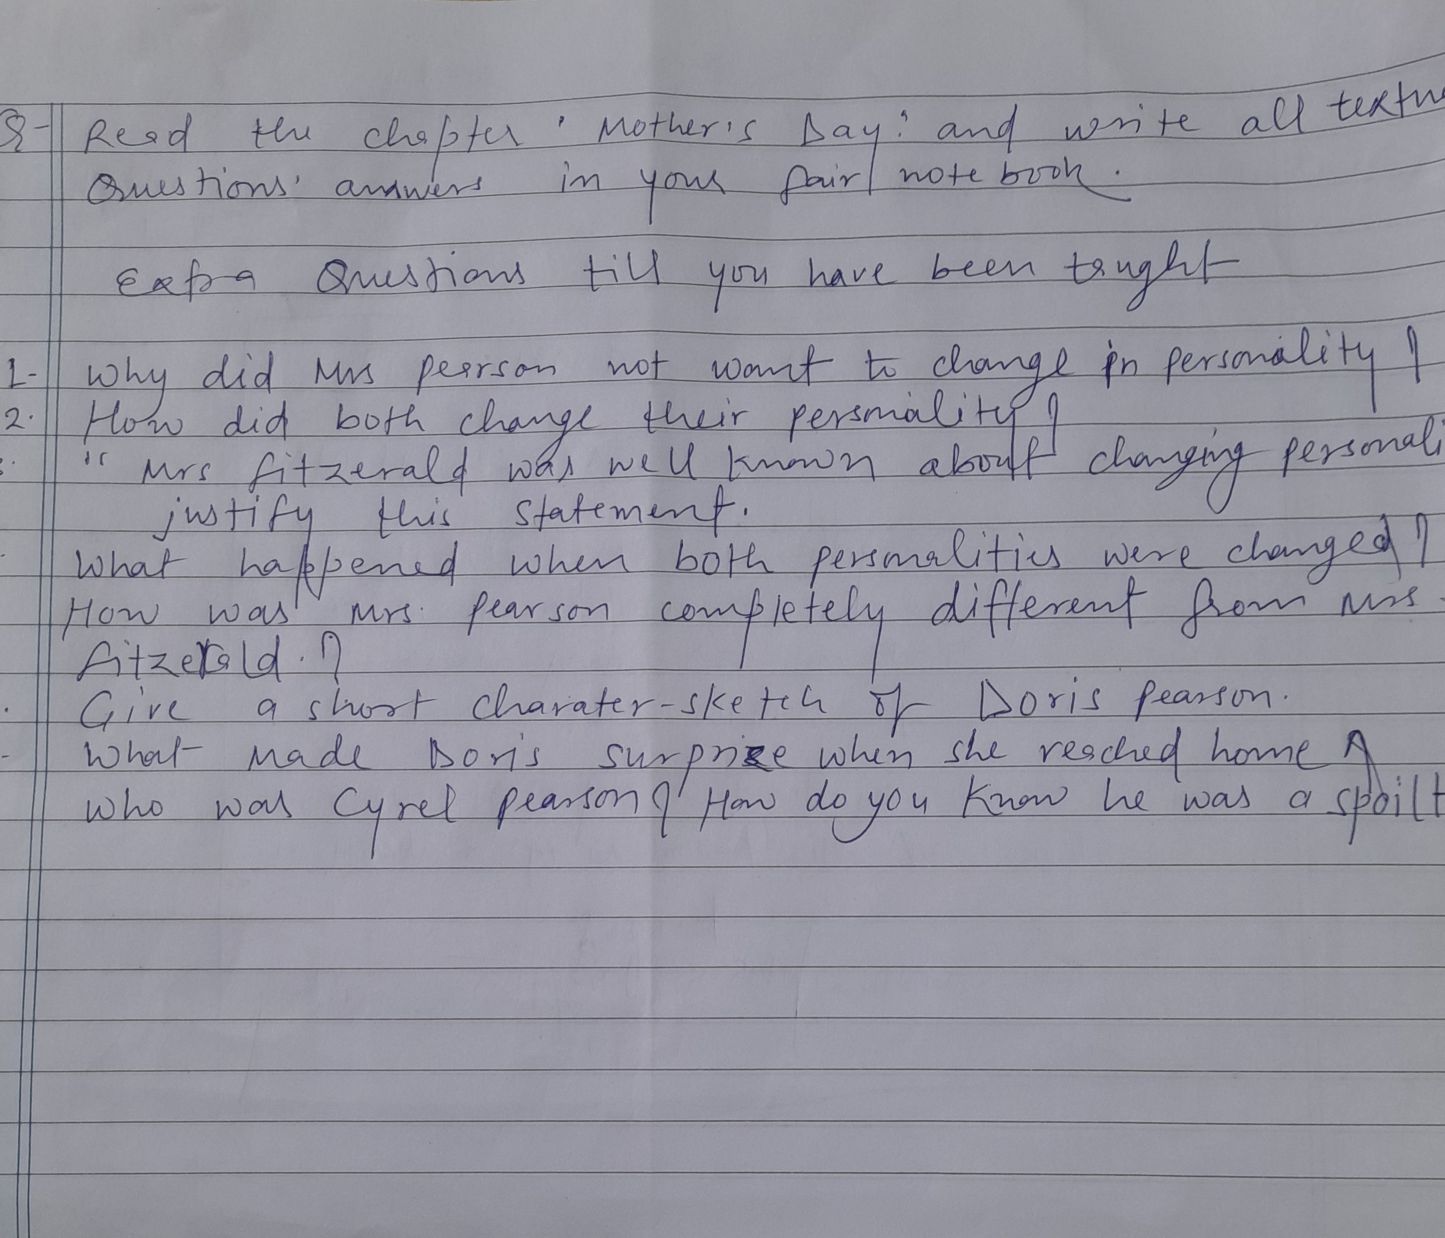 Q- Read the chapter 'Mother's Day' and write all
Questions' answers in your fair notebook.
Extra Questions till you have been taught
1- Why did Mrs pearson not want to change in personality?
2. How did both change their personality?
" Mrs fitzerald was well known about changing
justify this statement.
What happened when both personalities were changed?
How was Mrs. pearson completely different from Mrs.
fitzerald.?
Give a short charater-sketch of Doris pearson.
What made Doris surprize when she reached home?
who was Cyrel pearson? How do you know he was a spoilt